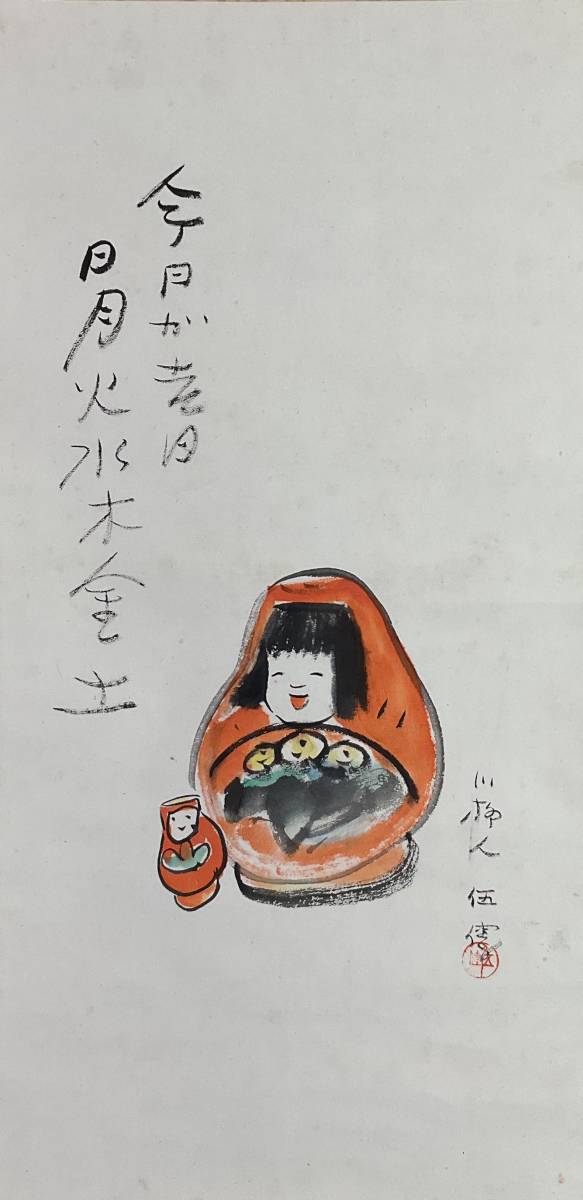 今日が吉日
日月火水木金土
川柳人 伍健